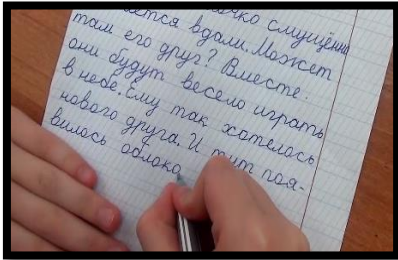 смущённо
вдали. Может
там его друг? Вместе
они будут весело играть
в небе. Ему так хотелось
нового друга. И тут поя-
вилось облако